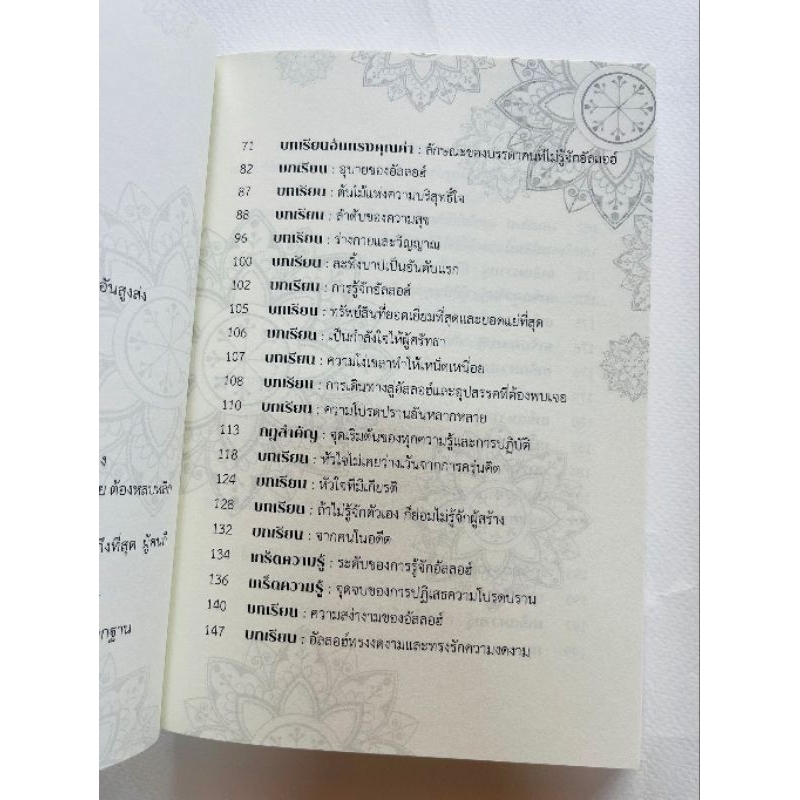 อันสูงส่ง
ง
ย ต้องหลบหลีก
ถึงที่สุด ผู้คนก็
กฐาน
71 บทเรียนอันทรงคุณค่า : ลักษณะของบรรดาคนที่ไม่รู้จักอัลลอฮ์
82 บทเรียน : อุบายของอัลลอฮ์
87 บทเรียน : ต้นไม้แห่งความบริสุทธิ์ใจ
88 บทเรียน : ลำดับของความสุข
96 บทเรียน : ร่างกายและวิญญาณ
100 บทเรียน : ละทิ้งบาปเป็นอันดับแรก
102 บทเรียน : การรู้จักอัลลอฮ์
105 บทเรียน : ทรัพย์สินที่ยอดเยี่ยมที่สุดและยอดแย่ที่สุด
106 บทเรียน : เป็นกำลังใจให้ผู้ศรัทธา
107 บทเรียน : ความโง่เขลาทำให้เหน็ดเหนื่อย
108 บทเรียน : การเดินทางสู่อัลลอฮ์และอุปสรรคที่ต้องพบเจอ
110 บทเรียน : ความโปรดปรานอันหลากหลาย
113 กฎสำคัญ : จุดเริ่มต้นของทุกความรู้และการปฏิบัติ
118 บทเรียน : หัวใจไม่เคยว่างเว้นจากการครุ่นคิด
124 บทเรียน : หัวใจที่มีเกียรติ
128 บทเรียน : ถ้าไม่รู้จักตัวเอง ก็ย่อมไม่รู้จักผู้สร้าง
132 บทเรียน : จากคนในอดีต
134 เกร็ดความรู้ : ระดับของการรู้จักอัลลอฮ์
136 เกร็ดความรู้ : จุดจบของการปฏิเสธความโปรดปราน
140 บทเรียน : ความสง่างามของอัลลอฮ์
147 บทเรียน : อัลลอฮ์ทรงงดงามและทรงรักความงดงาม